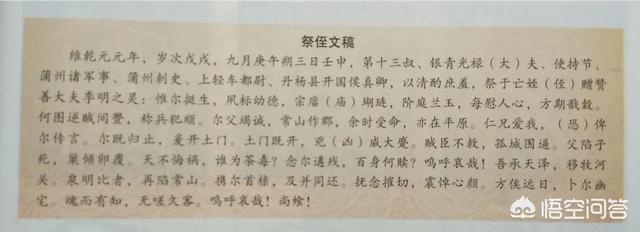 祭侄文稿
维乾元元年，岁次戊戌，九月庚午朔三日壬申，第十三叔、银青光禄（大）夫、使持节、
蒲州诸军事、蒲州刺史、上轻车都尉、丹杨县开国侯真卿，以清酌庶羞，祭于亡姪（侄）赠赞
善大夫季明之灵：惟尔挺生，夙标幼德，宗庿（庙）瑚琏，阶庭兰玉，每慰人心，方期戬穀。
何图逆贼间衅，称兵犯顺。尔父竭诚，常山作郡，余时受命，亦在平原。仁兄爱我，（恐）俾
尔传言。尔既归止，爰开土门。土门既开，兇（凶）威大蹙。贼臣不救，孤城围逼。父陷子
死，巢倾卵覆。天不悔祸，谁为荼毒？念尔遘残，百身何赎？呜呼哀哉！吾承天泽，移牧河
关。泉明比者，再陷常山。携尔首榇，及并同还。抚念摧切，震悼心颜。方俟远日，卜尔幽
宅。魂而有知，无嗟久客。呜呼哀哉！尚飨！
悟空问答